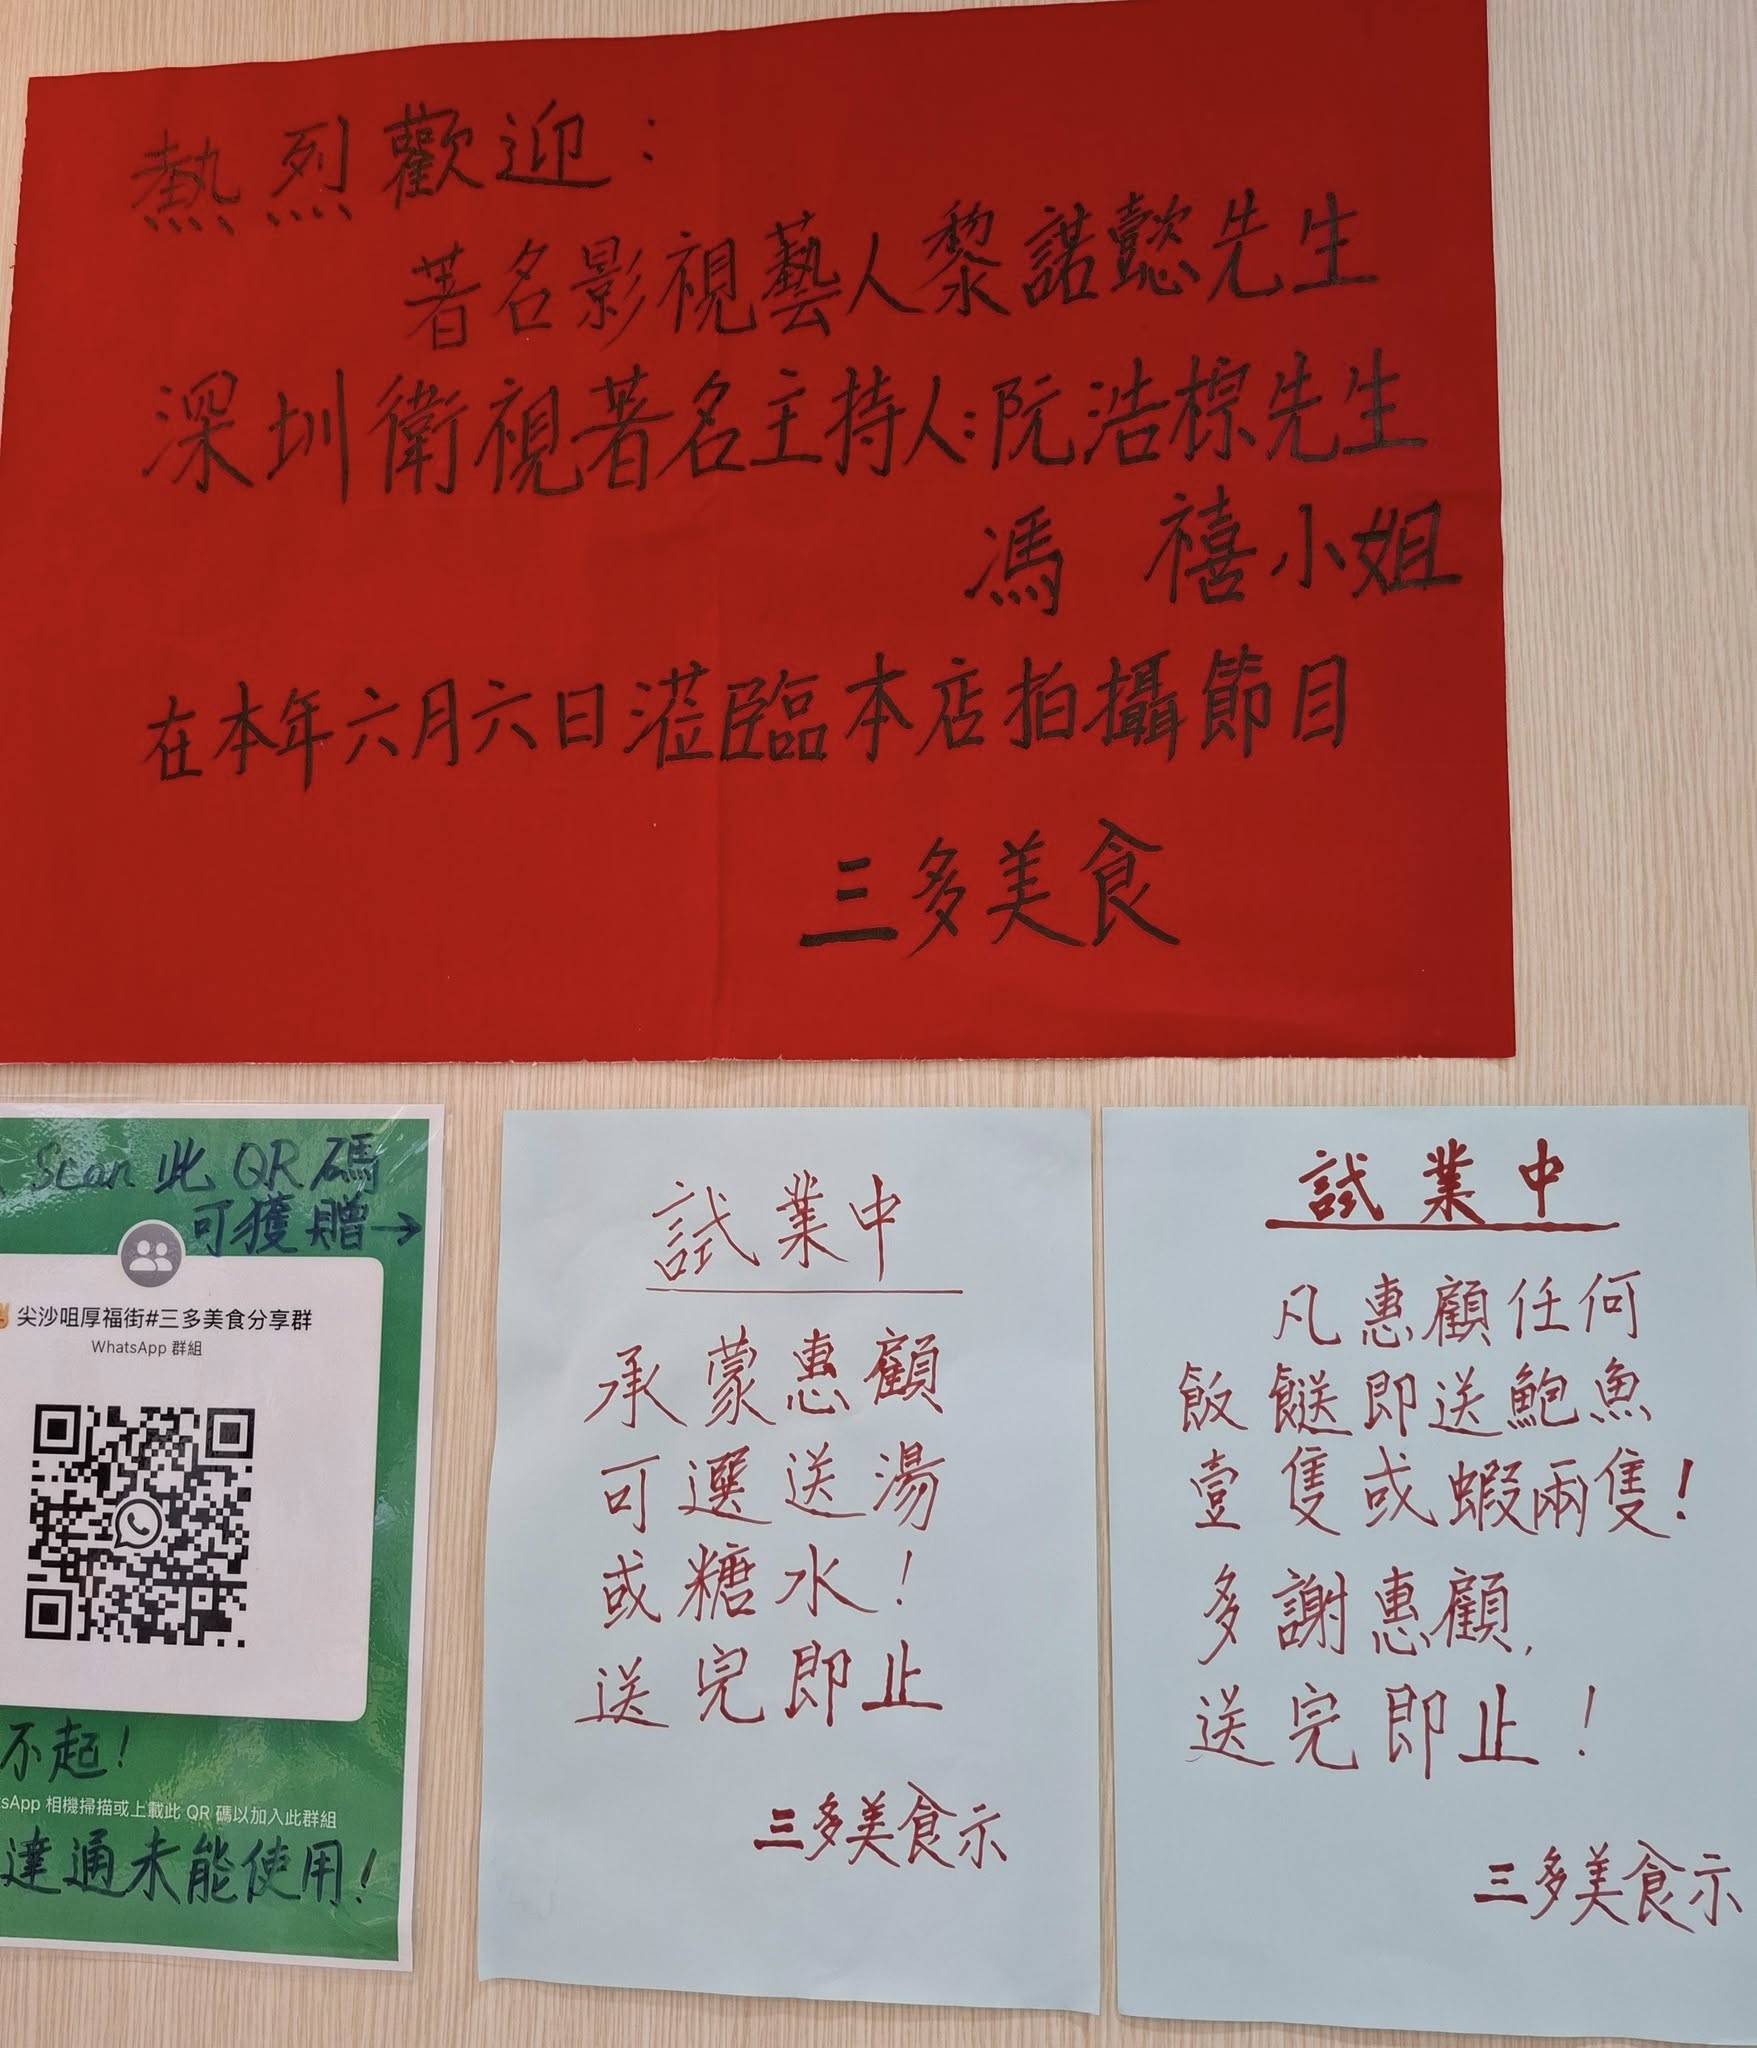 熱烈歡迎：
著名影視藝人黎諾懿先生
深圳衛視著名主持人：阮浩棕先生
馮 禧小姐
在本年六月六日蒞臨本店拍攝節目
三多美食
Scan 此 QR 碼
可獲贈→
尖沙咀厚福街#三多美食分享群
WhatsApp 群組
不起！
sApp 相機掃描或上載此 QR 碼以加入此群組
達通未能使用！
試業中
承蒙惠顧
可選送湯
或糖水！
送完即止
三多美食示
試業中
凡惠顧任何
飯餸即送鮑魚
壹隻或蝦兩隻！
多謝惠顧，
送完即止！
三多美食示